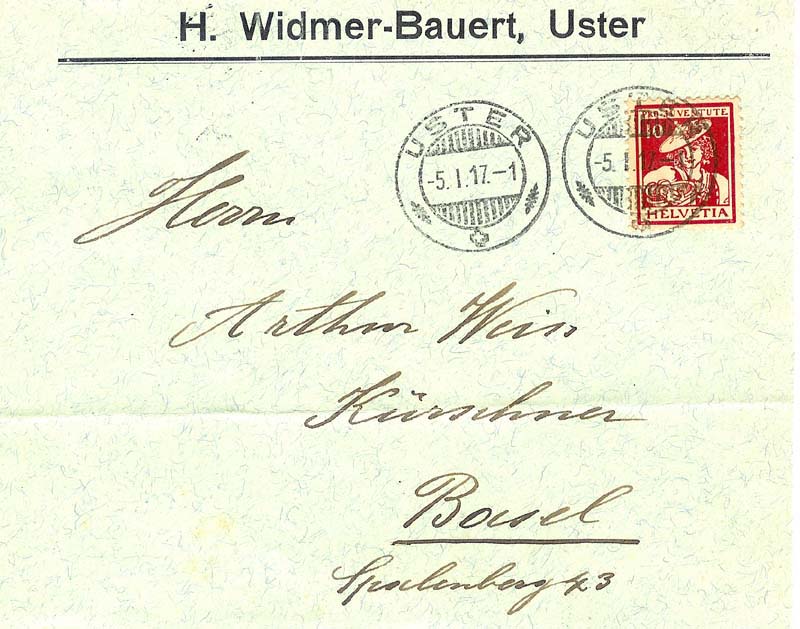 H. Widmer-Bauert, Uster
USTER
-5. I. 17.-1
UST
-5. I. 17.-
PRO JUVENTUTE
10
HELVETIA
Herrn
Arthur Weiss
Kürschner
Basel
Spalenberg 43